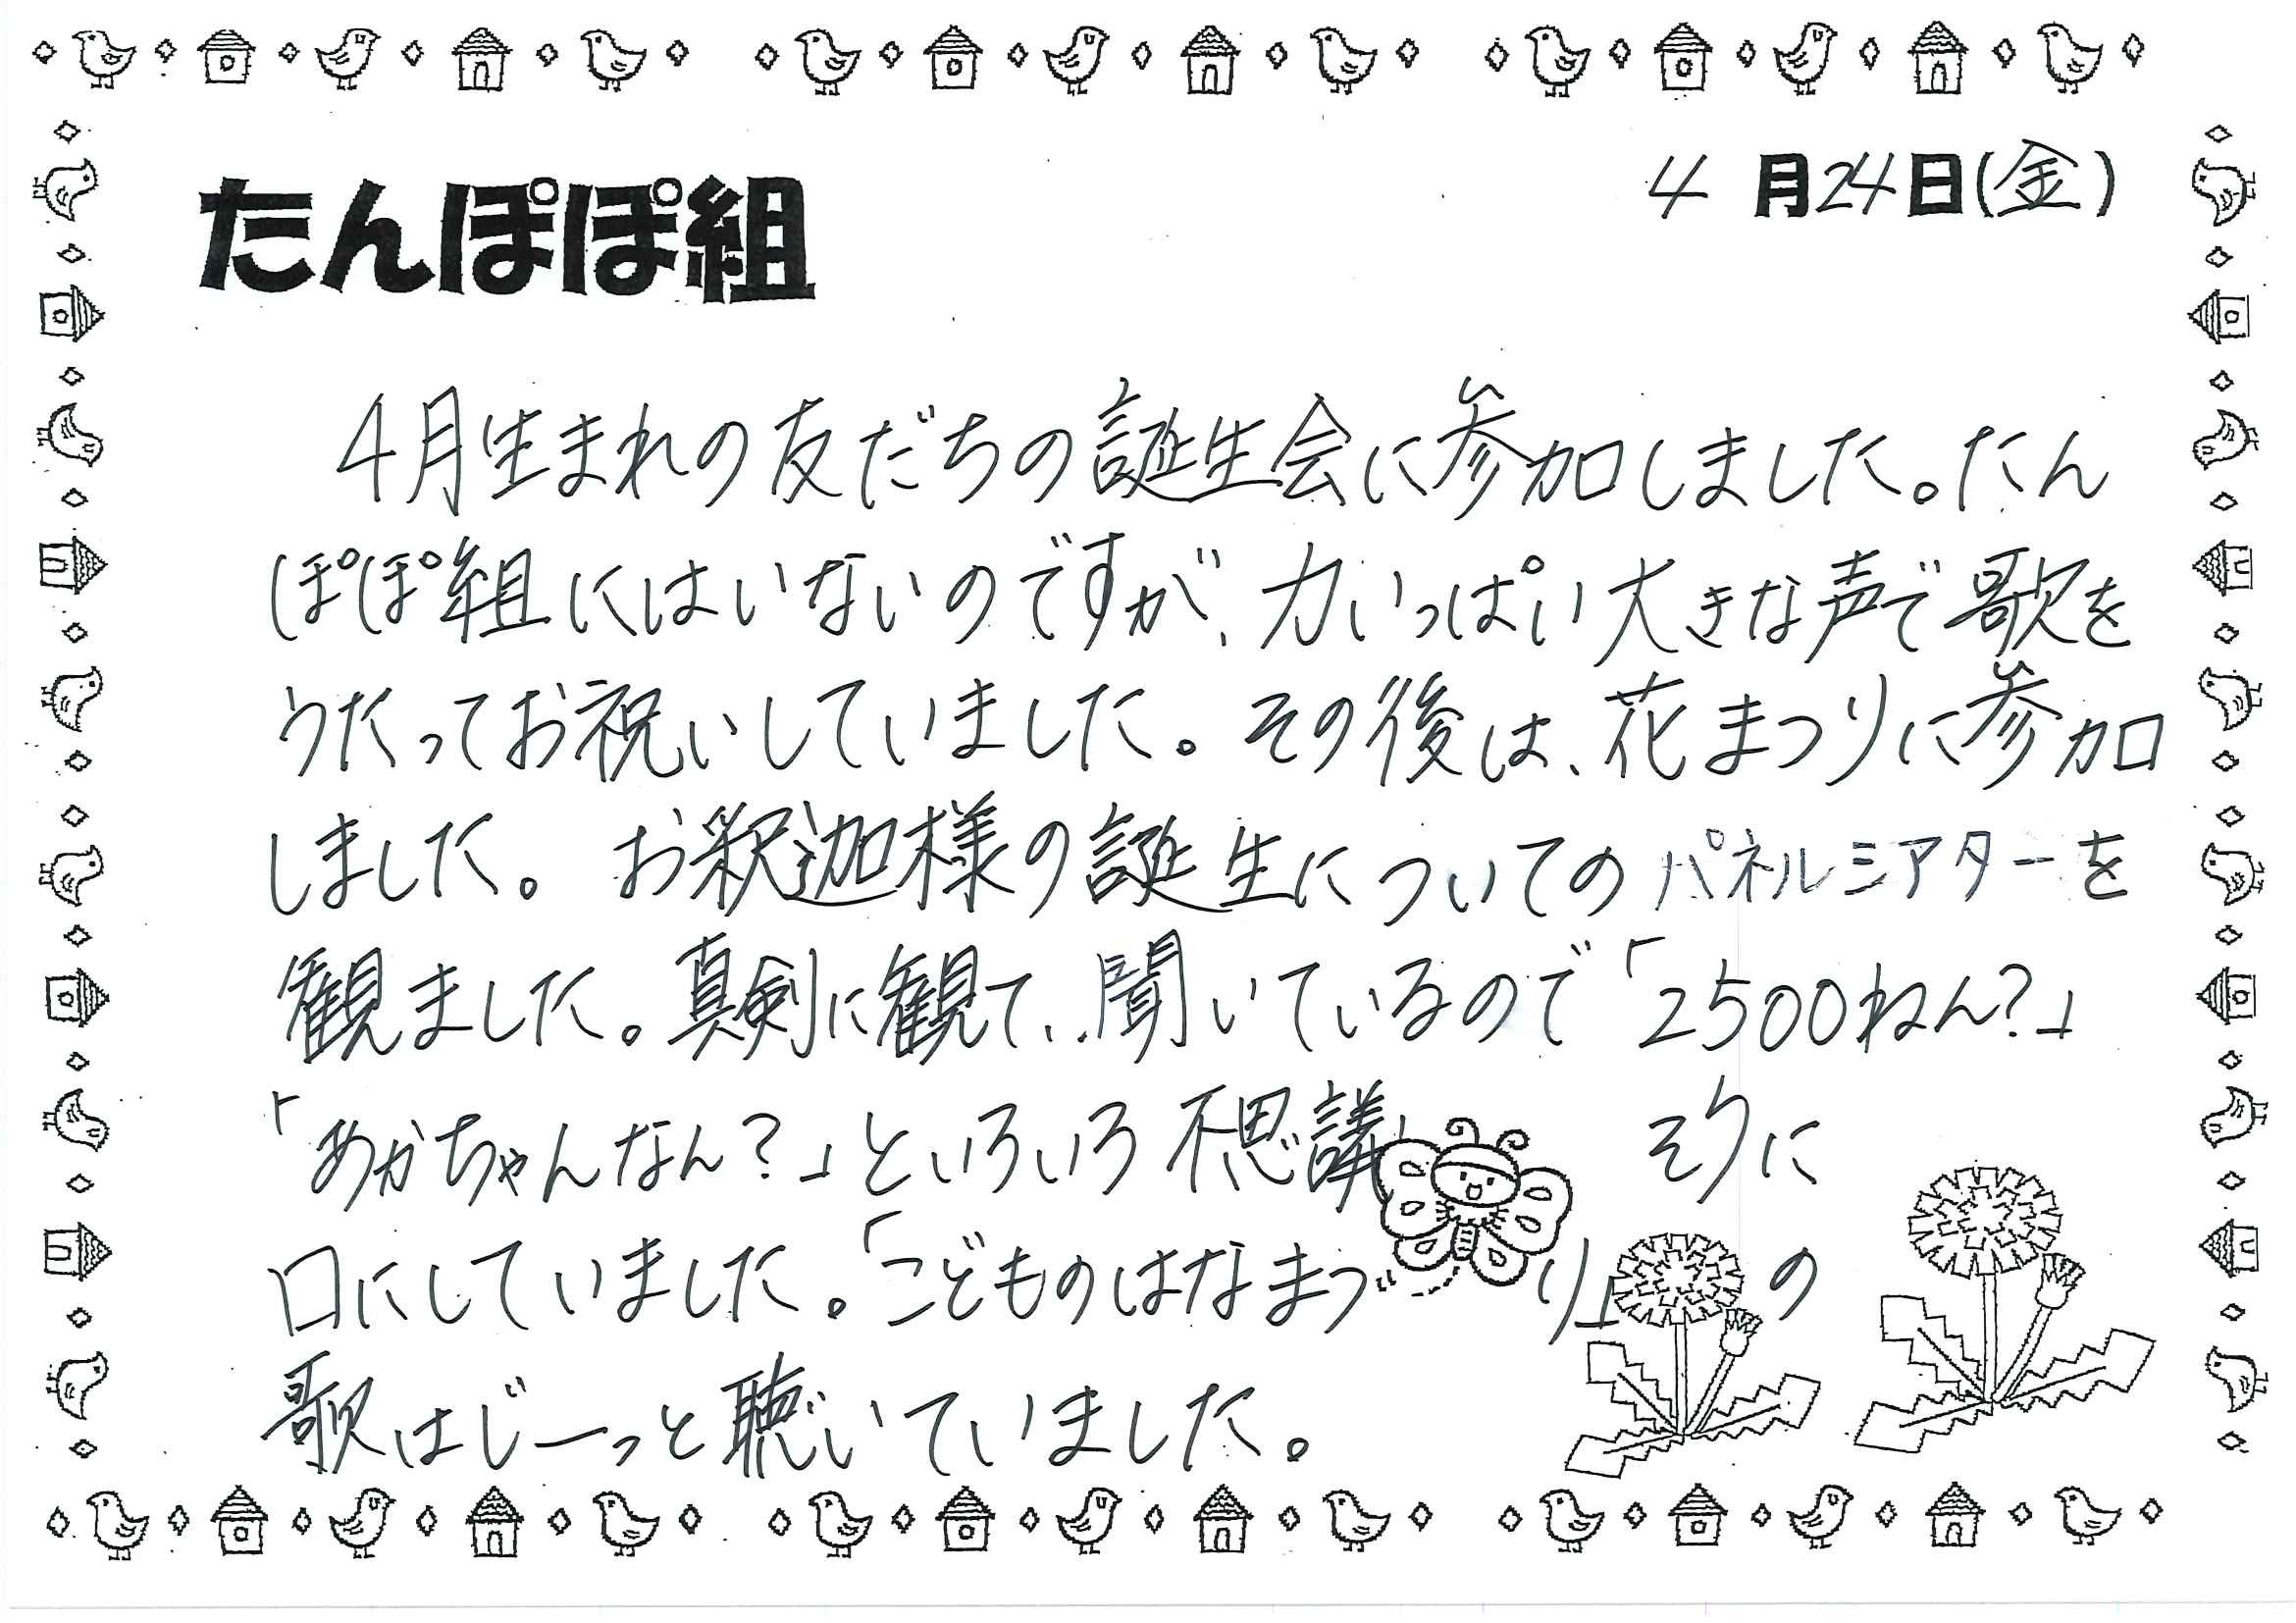 たんぽぽ組
4月24日(金)
4月生まれの友だちの誕生会に参加しました。たん
ぽぽ組にはいないのですが、力いっぱい大きな声で歌を
うたってお祝いしていました。その後は、花まつりに参加
しました。お釈迦様の誕生についてのパネルシアターを
観ました。真剣に観て、聞いているので「2500ねん?」
「あかちゃんなん?」といろいろ不思議そうに
口にしていました。「こどものはなまつり」の
歌はじーっと聴いていました。